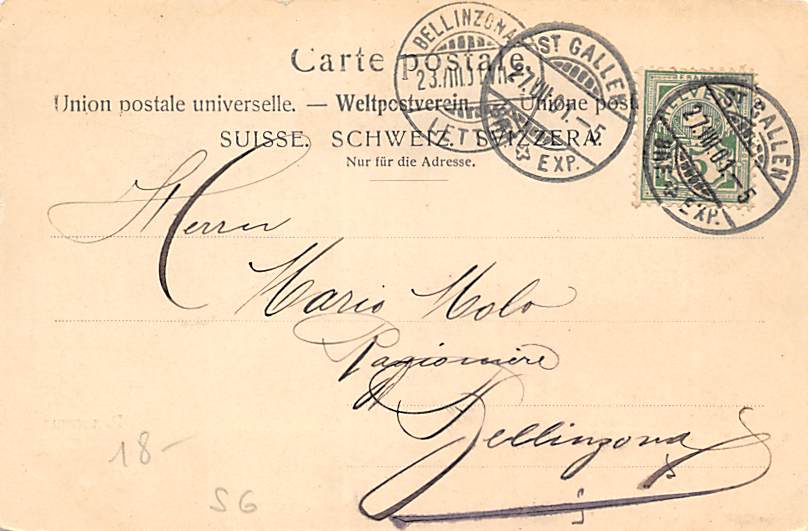 Carte postale.
Union postale universelle. — Weltpostverein. — Unione post.
SUISSE. SCHWEIZ. SVIZZERA.
Nur für die Adresse.
BELLINZONA
LETT
ST GALLEN
27.VII.01.–5
EXP.
ST GALLEN
27.VII.01.–5
EXP.
Herrn
Mario Molo
Ragioniere
Bellinzona
18-
SG